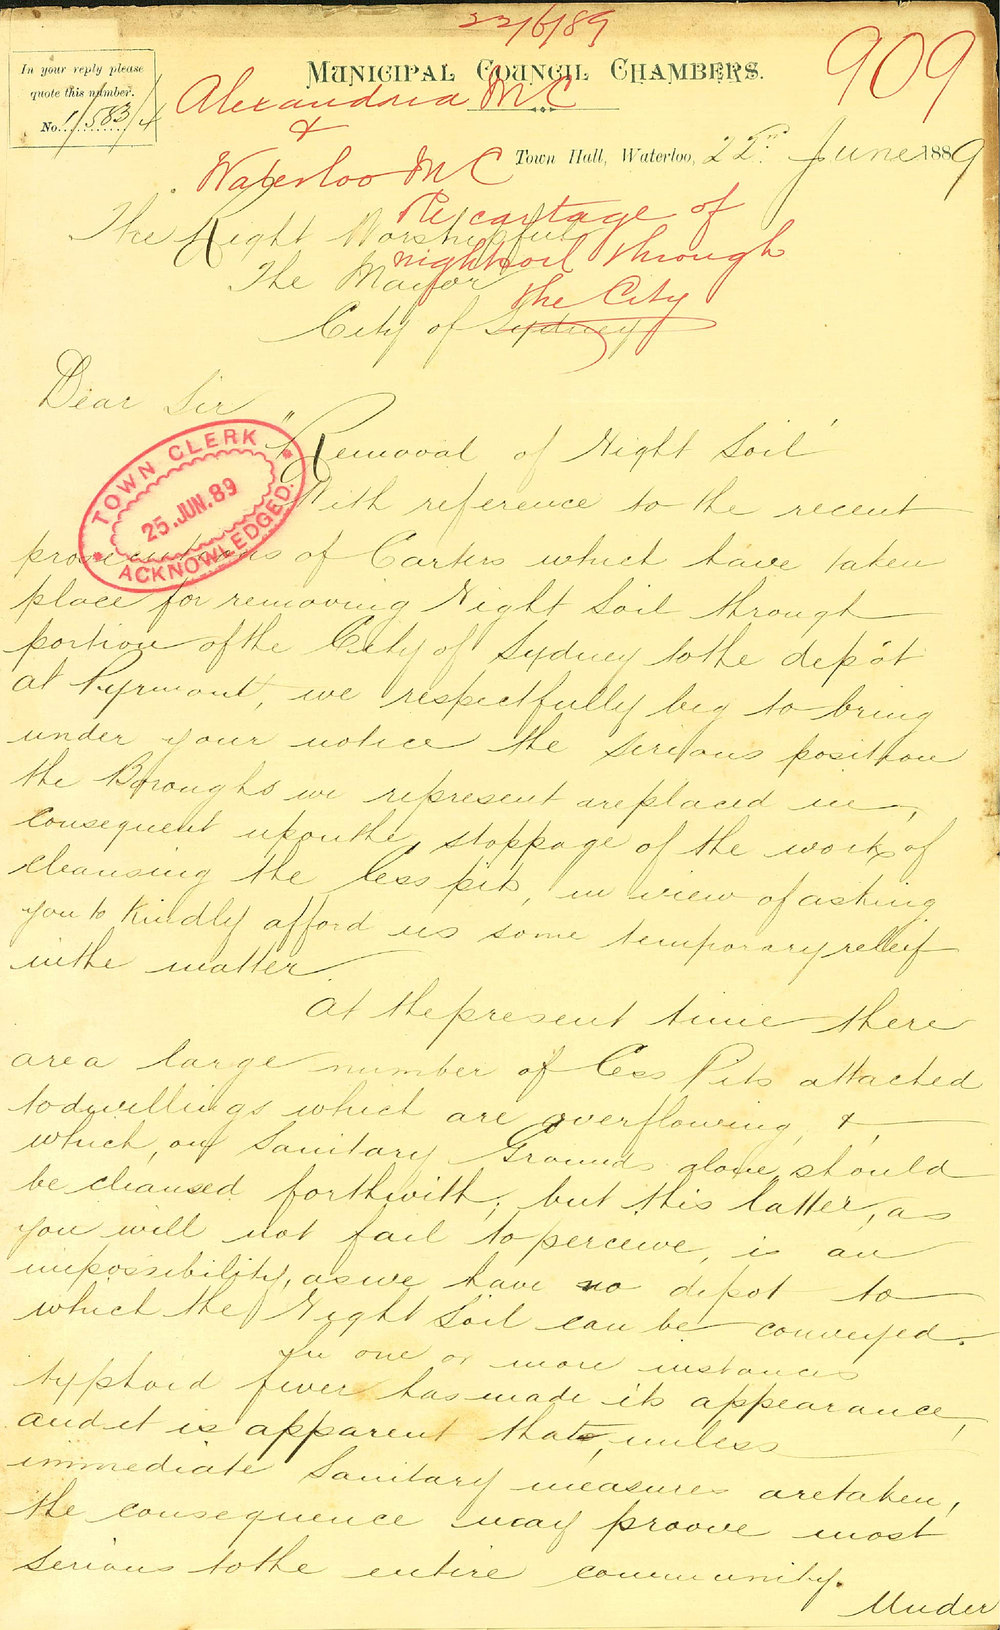 22/6/89
909
In your reply please
quote this number.
No. 1/583/4
MUNICIPAL COUNCIL CHAMBERS.
Alexandria MC
&
Waterloo MC
Re cartage of
nightsoil through
the City
Town Hall, Waterloo, 22nd June 1889
The Right Worshipful
The Mayor
City of Sydney
Dear Sir
"Removal of Night Soil"
TOWN CLERK
25.JUN.89
ACKNOWLEDGED.
With reference to the recent
prosecutions of Carters which have taken
place for removing Night Soil through
portion of the City of Sydney to the depôt
at Pyrmont, we respectfully beg to bring
under your notice the serious position
the Boroughs we represent are placed in,
consequent upon the stoppage of the work of
cleansing the Cess pits, in view of asking
you to kindly afford us some temporary releif
in the matter
At the present time there
are a large number of Cess Pits attached
to dwellings which are overflowing, &,
which, on Sanitary Grounds alone, should
be cleansed forthwith, but this latter, as
you will not fail to perceive, is an
impossibility, as we have no depot to
which the Night Soil can be conveyed.
In one or more instances
typhoid fever has made its appearance,
and it is apparent that, unless
immediate Sanitary measures are taken,
the consequence may proove most
serious to the entire community.
Under